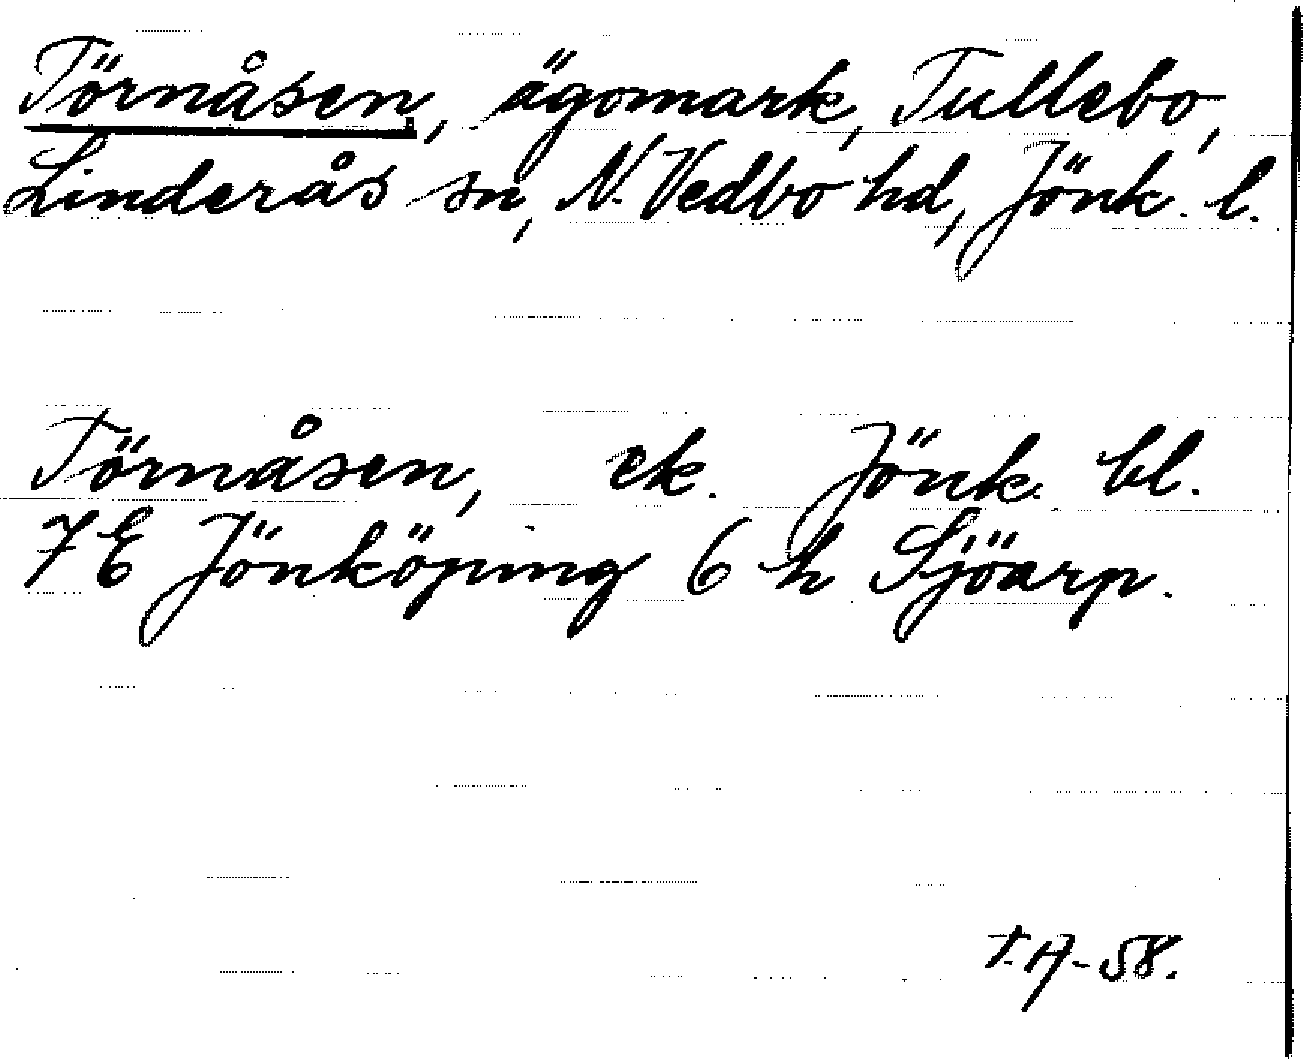 Törnåsen, ägomark, Tullebo,
Linderås sn, N. Vedbo hd, Jönk. l.
Törnåsen, ek. Jönk. bl.
7E Jönköping 6 h Sjöarp.
T.A-58.